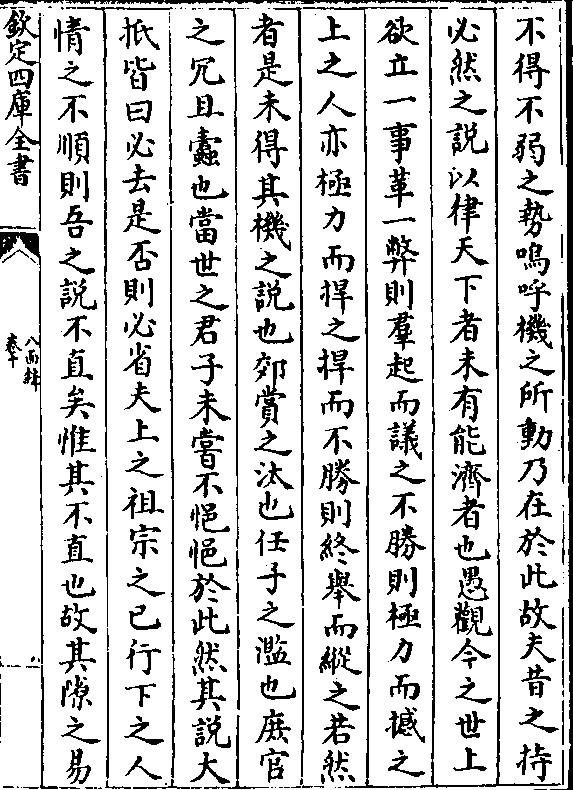 不得不弱之勢嗚呼機之所動乃在於此故夫昔之持
必然之說以律天下者未有能濟者也愚觀今之世上
欲立一事革一弊則羣起而議之不勝則極力而撼之
上之人亦極力而捍之捍而不勝則終舉而縱之若然
者是未得其機之說也郊賞之汰也任子之濫也庶官
之冗且蠹也當世之君子未嘗不悒悒於此然其說大
抵皆曰必去是否則必省夫上之祖宗之已行下之人
情之不順則吾之說不直矣惟其不直也故其隙之易
欽定四庫全書
八面鋒
卷十